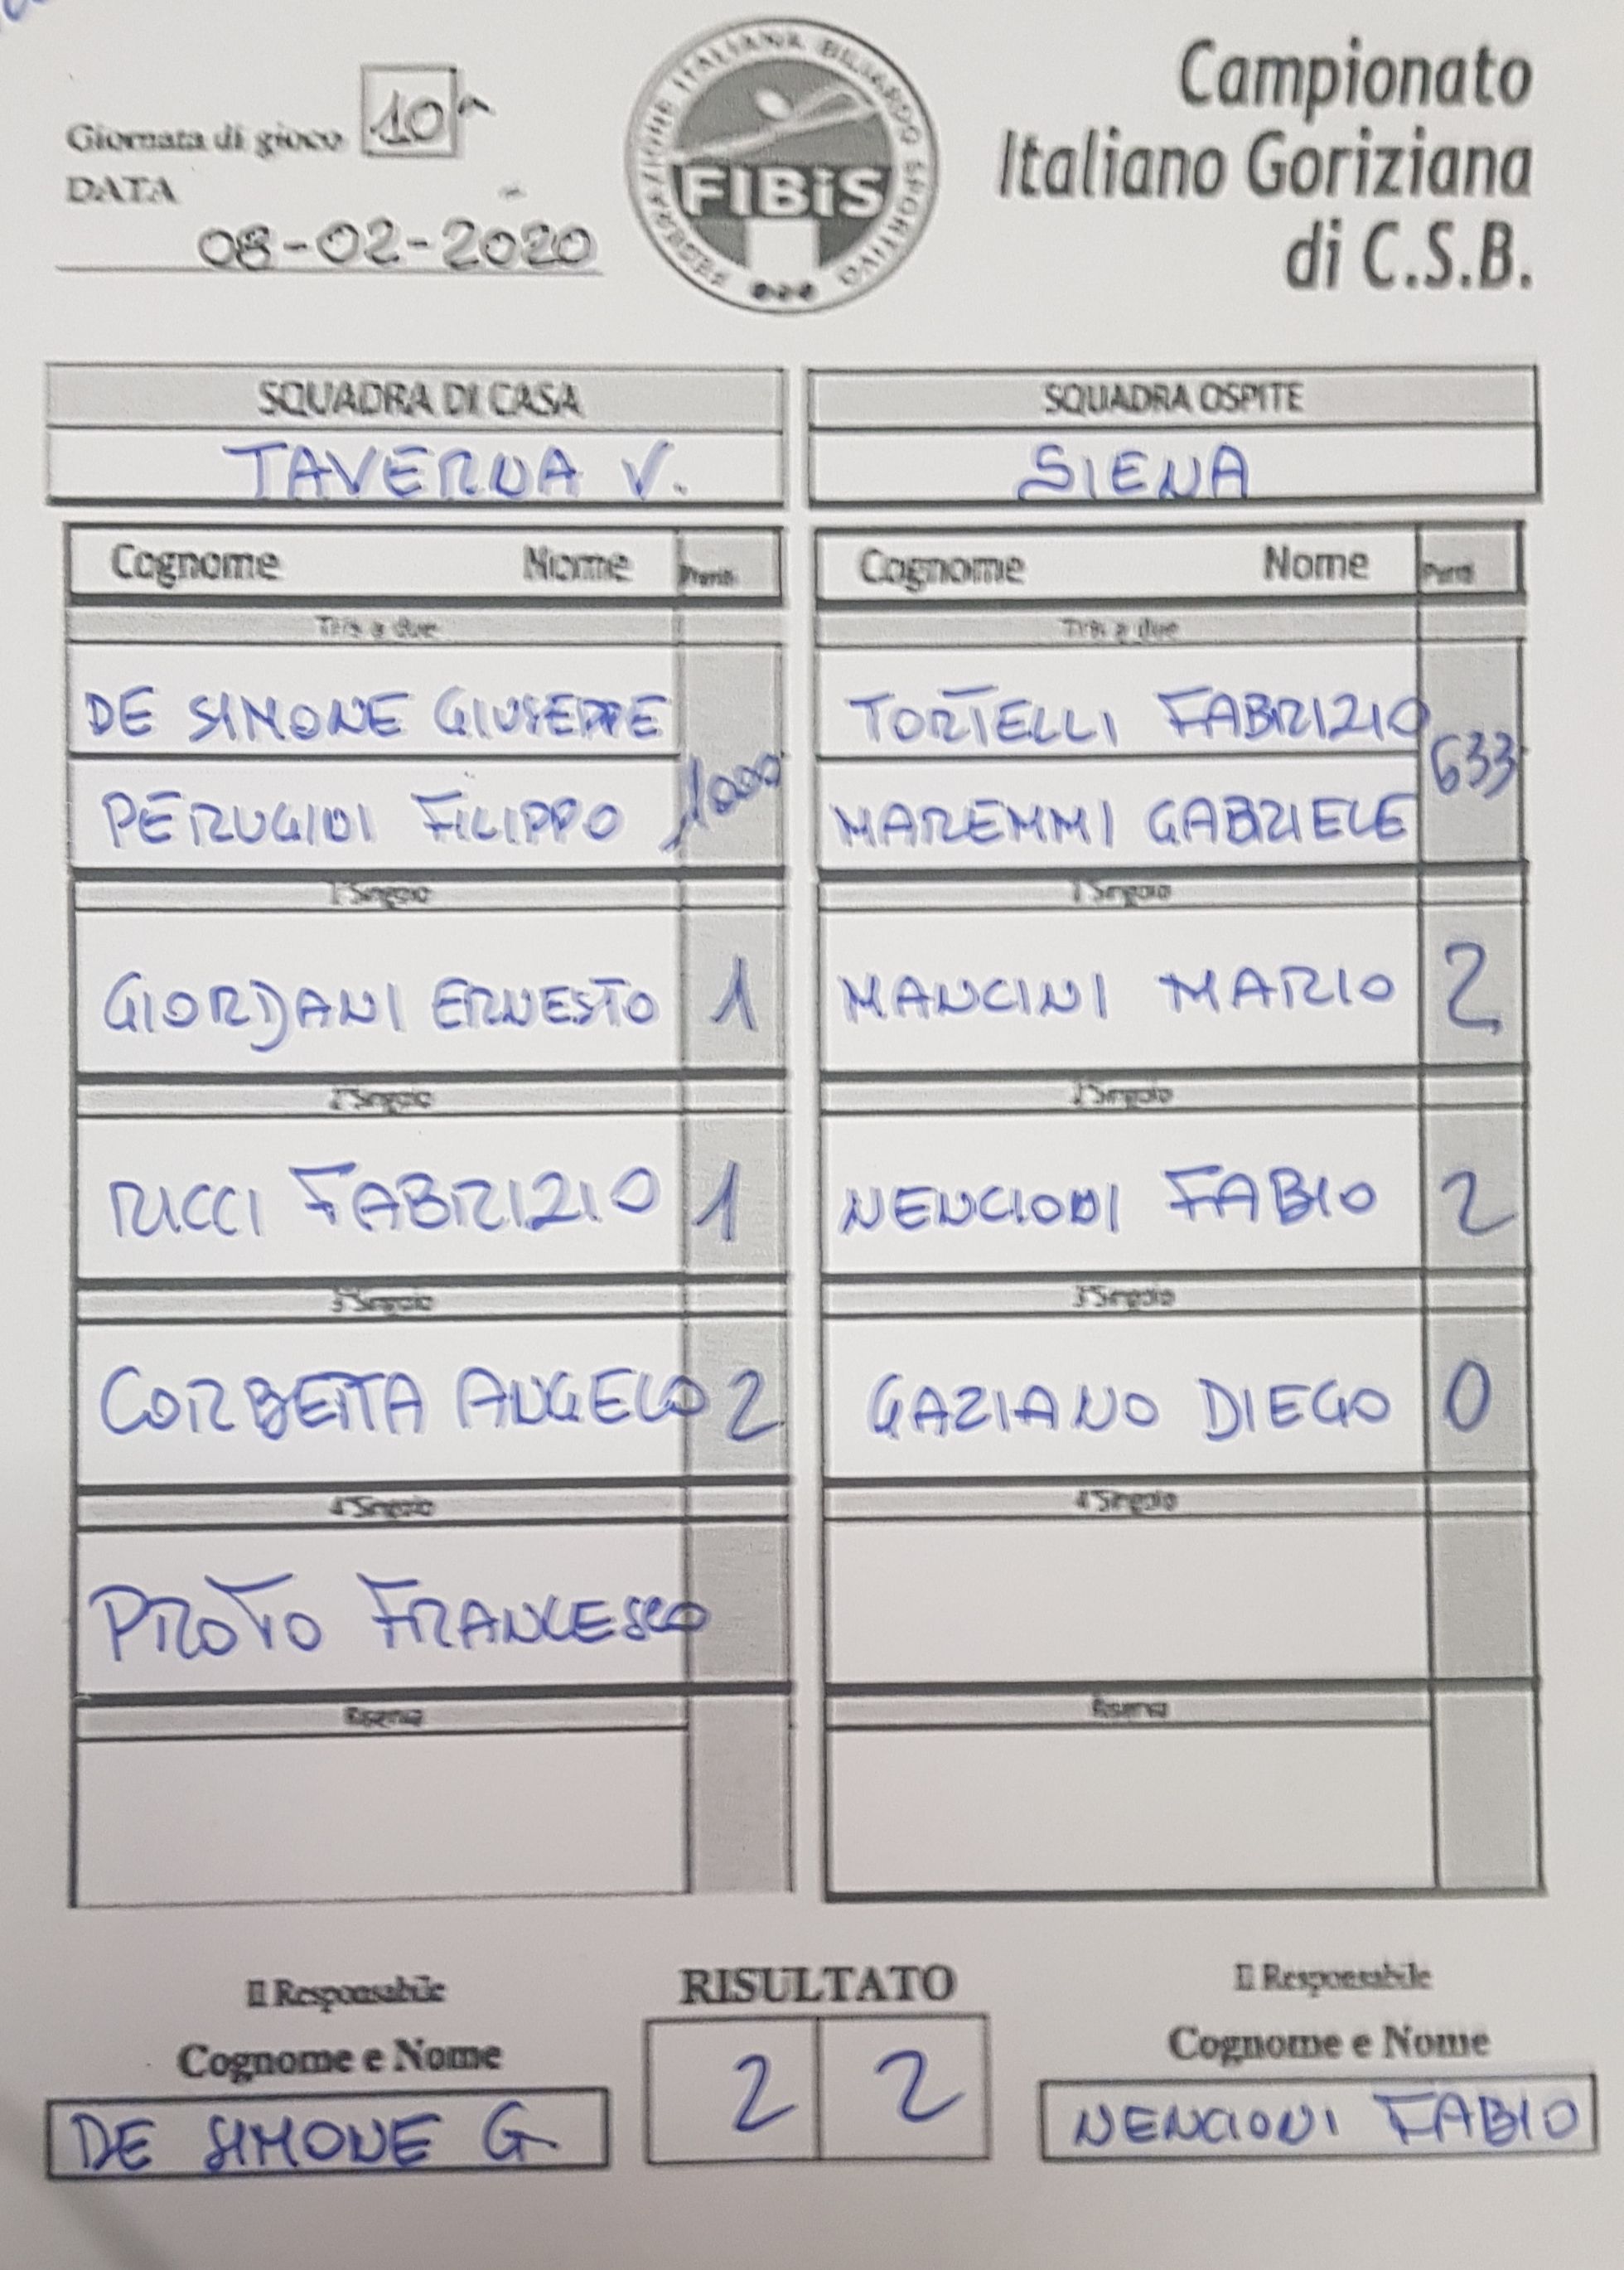 Giornata di gioco 10ª
DATA
08-02-2020
FEDERAZIONE ITALIANA BILIARDO SPORTIVO
FIBiS
Campionato
Italiano Goriziana
di C.S.B.
SQUADRA DI CASA
TAVERNA V.
SQUADRA OSPITE
SIENA
Cognome Nome Punti
Cognome Nome Punti
Tris a due
Tris a due
DE SIMONE GIUSEPPE
PERUGINI FILIPPO 1000
TORTELLI FABRIZIO
MAREMMI GABRIELE 633
1°Singolo
1°Singolo
GIORDANI ERNESTO 1
MANCINI MARIO 2
2°Singolo
2°Singolo
RICCI FABRIZIO 1
NENCIONI FABIO 2
3°Singolo
3°Singolo
CORBETTA ANGELO 2
GAZIANO DIEGO 0
4°Singolo
4°Singolo
PROTO FRANCESCO
Riserva
Riserva
Il Responsabile
Cognome e Nome
DE SIMONE G
RISULTATO
2 2
Il Responsabile
Cognome e Nome
NENCIONI FABIO